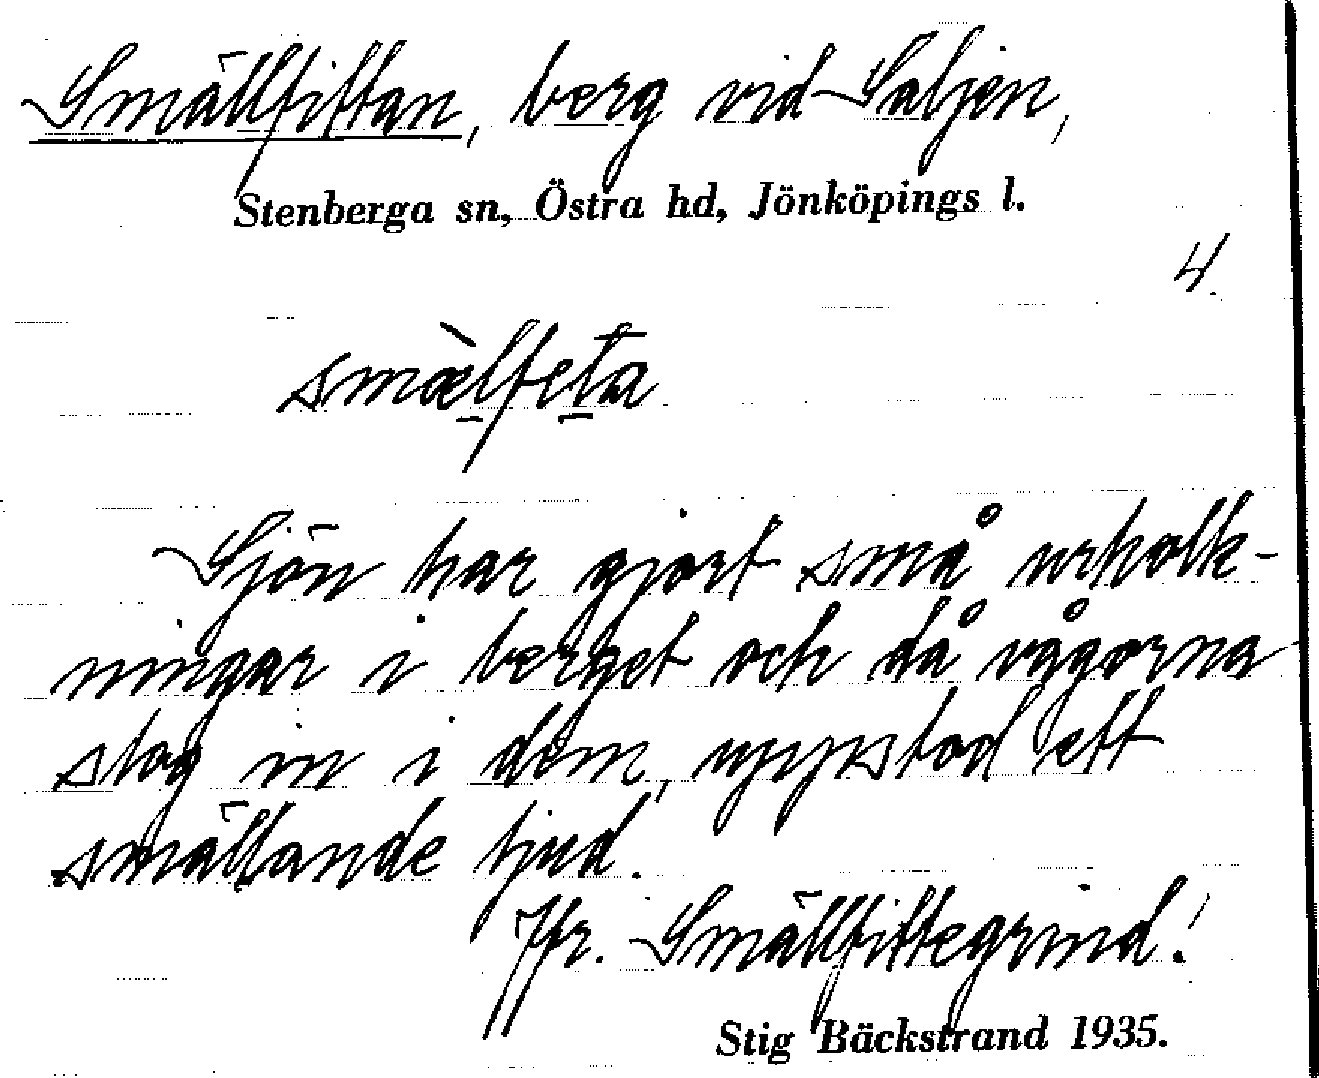 Smällfittan, berg vid Saljen,
Stenberga sn, Östra hd, Jönköpings l.
4.
smæ̀lfeta
Sjön har gjort små urholk-
ningar i berget och då vågorna
slog in i dem, uppstod ett
smällande ljud.
Jfr. Smällfittegrind!
Stig Bäckstrand 1935.